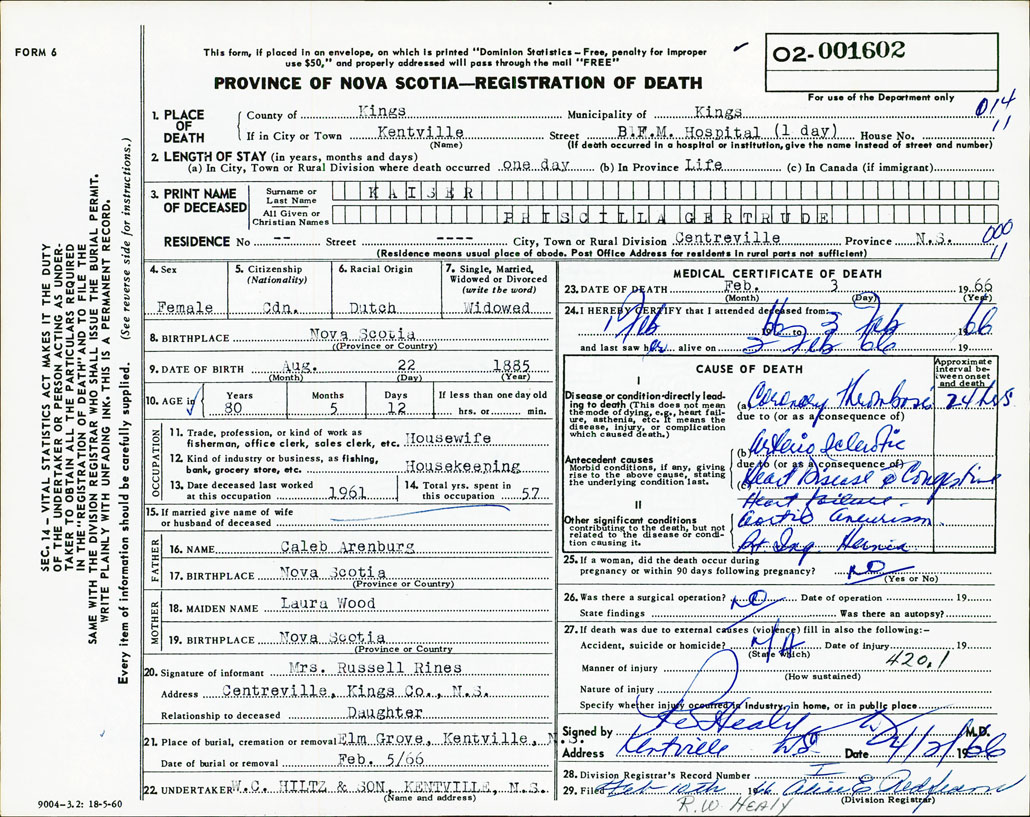 FORM 6
This form, if placed in an envelope, on which is printed "Dominion Statistics – Free, penalty for improper
use $50," and properly addressed will pass through the mail "FREE"
02-001602
PROVINCE OF NOVA SCOTIA—REGISTRATION OF DEATH
For use of the Department only
014
11
1. PLACE OF DEATH
County of Kings Municipality of Kings
If in City or Town Kentville Street B.F.M. Hospital (1 day) House No.
(Name) (If death occurred in a hospital or institution, give the name instead of street and number)
2. LENGTH OF STAY (in years, months and days)
(a) In City, Town or Rural Division where death occurred one day (b) In Province Life (c) In Canada (if immigrant)
3. PRINT NAME OF DECEASED
Surname or Last Name KAISER
All Given or Christian Names PRISCILLA GERTRUDE
000
11
RESIDENCE No -- Street ---- City, Town or Rural Division Centreville Province N.S.
(Residence means usual place of abode. Post Office Address for residents in rural parts not sufficient)
4. Sex Female
5. Citizenship (Nationality) Cdn.
6. Racial Origin Dutch
7. Single, Married, Widowed or Divorced (write the word) Widowed
8. BIRTHPLACE Nova Scotia
(Province or Country)
9. DATE OF BIRTH Aug. 22 1885
(Month) (Day) (Year)
10. AGE in Years 80 Months 5 Days 12 If less than one day old hrs. or min.
OCCUPATION
11. Trade, profession, or kind of work as
fisherman, office clerk, sales clerk, etc. Housewife
12. Kind of industry or business, as fishing,
bank, grocery store, etc. Housekeeping
13. Date deceased last worked
at this occupation 1961
14. Total yrs. spent in
this occupation 57
15. If married give name of wife
or husband of deceased
FATHER
16. NAME Caleb Arenburg
17. BIRTHPLACE Nova Scotia
(Province or Country)
MOTHER
18. MAIDEN NAME Laura Wood
19. BIRTHPLACE Nova Scotia
(Province or Country
20. Signature of informant Mrs. Russell Rines
Address Centreville, Kings Co., N.S.
Relationship to deceased Daughter
21. Place of burial, cremation or removal Elm Grove, Kentville, N.S.
Date of burial or removal Feb. 5/66
22. UNDERTAKER W.C. HILTZ & SON, KENTVILLE, N.S.
(Name and address)
MEDICAL CERTIFICATE OF DEATH
23. DATE OF DEATH Feb. 3 1966
(Month) (Day) (Year)
24. I HEREBY CERTIFY that I attended deceased from:
Feb 66 to 3 Feb 66
and last saw her alive on 3 Feb 66 19
CAUSE OF DEATH
Approximate interval between onset and death
I
Disease or condition directly leading to death (This does not mean the mode of dying, e.g., heart failure, asthenia, etc. It means the disease, injury, or complication which caused death.)
(a) Coronary Thrombosis 24 hrs
due to (or as a consequence of)
Antecedent causes
Morbid conditions, if any, giving rise to the above cause, stating the underlying condition last.
(b) Arterio sclerotic
due to (or as a consequence of)
(c) Heart Disease c Congestive
Heart Failure
II
Other significant conditions
contributing to the death, but not related to the disease or condition causing it.
Aortic Aneurism
Rt Ing. Hernia
25. If a woman, did the death occur during
pregnancy or within 90 days following pregnancy? NO
(Yes or No)
26. Was there a surgical operation? NO Date of operation 19
State findings Was there an autopsy?
27. If death was due to external causes (violence) fill in also the following:–
Accident, suicide or homicide? Date of injury 19
(State which) 420.1
Manner of injury
(How sustained)
Nature of injury
Specify whether injury occurred in industry, in home, or in public place
Signed by R W Healy M.D.
Address Kentville NS Date 4/2/1966
28. Division Registrar's Record Number
29. Filed Feb 12th 1966 Alice E Redderson
(Division Registrar)
R.W. HEALY
9004-3.2: 18-5-60
SEC. 14 – VITAL STATISTICS ACT MAKES IT THE DUTY
OF THE UNDERTAKER OR PERSON ACTING AS UNDER-
TAKER TO OBTAIN ALL THE PARTICULARS REQUIRED
IN THE "REGISTRATION OF DEATH" AND TO FILE THE
SAME WITH THE DIVISION REGISTRAR WHO SHALL ISSUE THE BURIAL PERMIT.
WRITE PLAINLY WITH UNFADING INK. THIS IS A PERMANENT RECORD.
Every item of information should be carefully supplied. (See reverse side for instructions.)